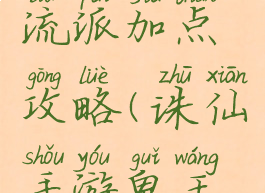 流派加点
gōng lüè zhū xiān
攻略(诛仙
shǒu yóu guǐ wáng
手游鬼王